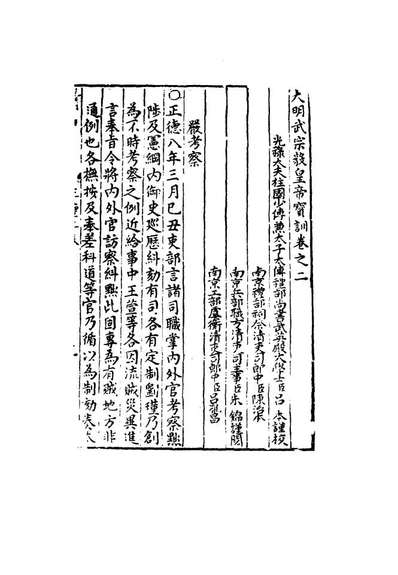 大明武宗毅皇帝寶訓卷之二
光祿大夫柱國少傅兼太子太傅禮部尚書武英殿大學士臣呂本謹校
南京禮部祠祭清吏司郎中臣陳治本
南京兵部職方清吏司主事臣朱錦謹閱
南京工部虞衡清吏司郎中臣呂胤昌
嚴考察
○正德八年三月己丑吏部言諸司職掌內外官考察黜
陟及憲綱內御史巡歷糾劾有司各有定制劉瑾乃創
為不時考察之例近給事中王萱等各因流賊災異進
言奉旨令將內外官訪察糾黜此回專為有賊地方非
通例也各撫按及奉差科道等官乃循以為制劾奏太